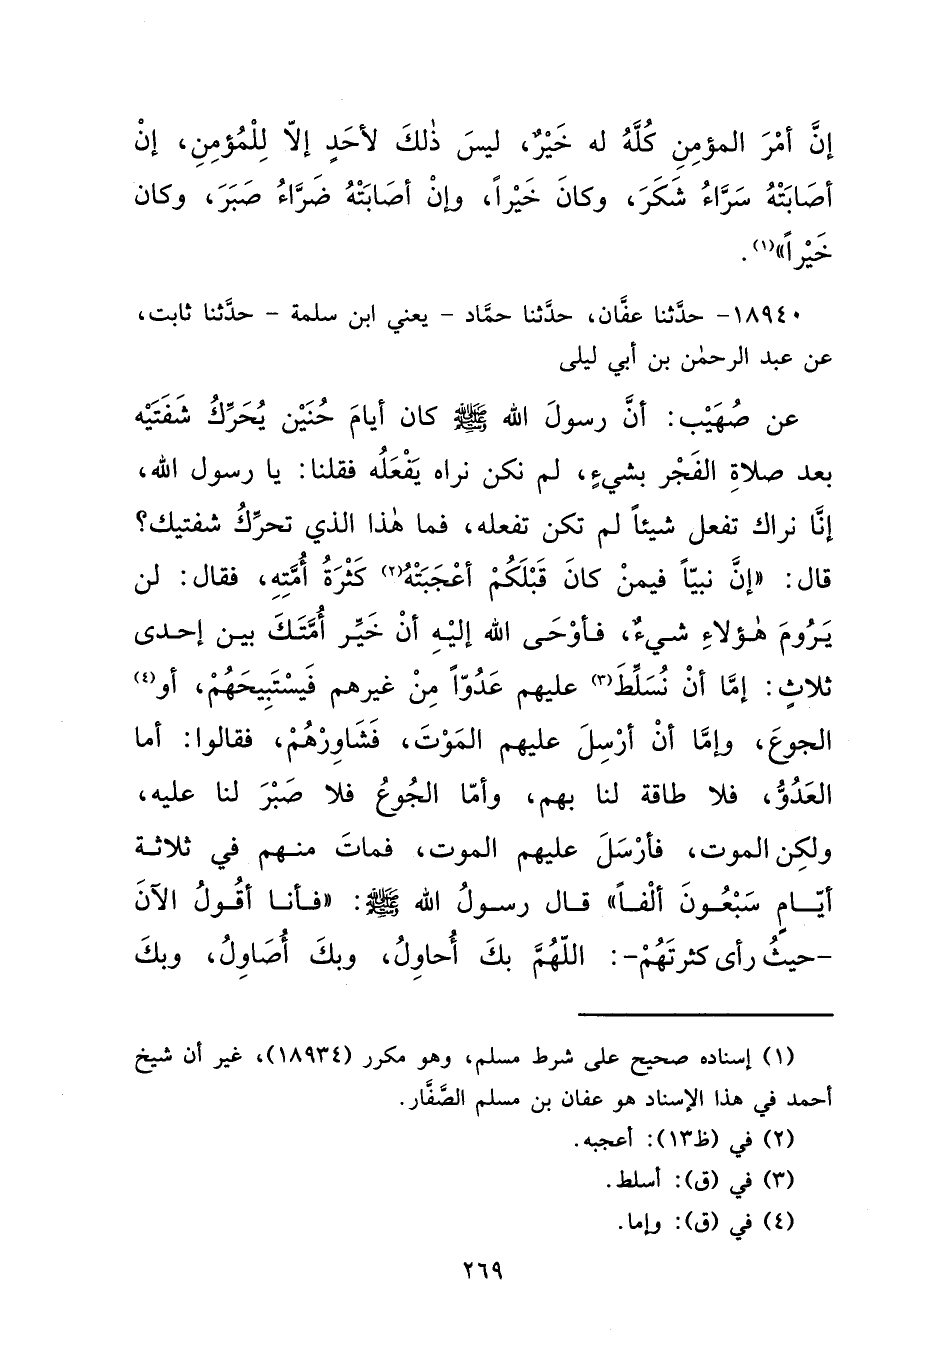 إنَّ أمْرَ المؤمِنِ كُلَّهُ له خَيْرٌ، ليسَ ذٰلكَ لأحَدٍ إلاّ لِلْمُؤمِنِ، إنْ
أصَابَتْهُ سَرَّاءُ شَكَرَ، وكانَ خَيْراً، وإنْ أصَابَتْهُ ضَرَّاءُ صَبَرَ، وكان
خَيْراً»(١).
١٨٩٤٠- حدَّثنا عفَّان، حدَّثنا حمَّاد - يعني ابن سلمة - حدَّثنا ثابت،
عن عبد الرحمٰن بن أبي ليلى
عن صُهَيْب: أنَّ رسولَ الله ﷺ كان أيامَ حُنَيْن يُحَرِّكُ شَفَتَيْه
بعد صلاةِ الفَجْر بشيءٍ، لم نكن نراه يَفْعَلُه فقلنا: يا رسول الله،
إنَّا نراك تفعل شيئاً لم تكن تفعله، فما هٰذا الذي تحرِّكُ شفتيك؟
قال: «إنَّ نبيّاً فيمنْ كانَ قَبْلَكُمْ أعْجَبَتْهُ(٢) كَثْرَةُ أُمَّتِهِ، فقال: لن
يَرُومَ هٰؤلاءِ شيءٌ، فأوْحَى الله إليْهِ أنْ خَيِّر أُمَّتَكَ بين إحدى
ثلاثٍ: إمَّا أنْ نُسَلِّطَ(٣) عليهم عَدُوّاً مِنْ غيرهم فَيَسْتَبِيحَهُمْ، أو(٤)
الجوعَ، وإمَّا أنْ أرْسِلَ عليهم المَوْتَ، فَشَاوِرْهُمْ، فقالوا: أما
العَدُوُّ، فلا طاقة لنا بهم، وأمّا الجُوعُ فلا صَبْرَ لنا عليه،
ولكِن الموت، فأرْسَلَ عليهم الموت، فماتَ منهم في ثلاثة
أيّامٍ سَبْعُونَ ألْفاً» قال رسولُ الله ﷺ: «فأنا أقُولُ الآنَ
-حيثُ رأى كثرتَهُمْ-: اللّهُمَّ بكَ أُحاوِلُ، وبكَ أُصَاوِلُ، وبكَ
(١) إسناده صحيح على شرط مسلم، وهو مكرر (١٨٩٣٤)، غير أن شيخ
أحمد في هذا الإسناد هو عفان بن مسلم الصَّفَّار.
(٢) في (ظ١٣): أعجبه.
(٣) في (ق): أسلط.
(٤) في (ق): وإما.
٢٦٩